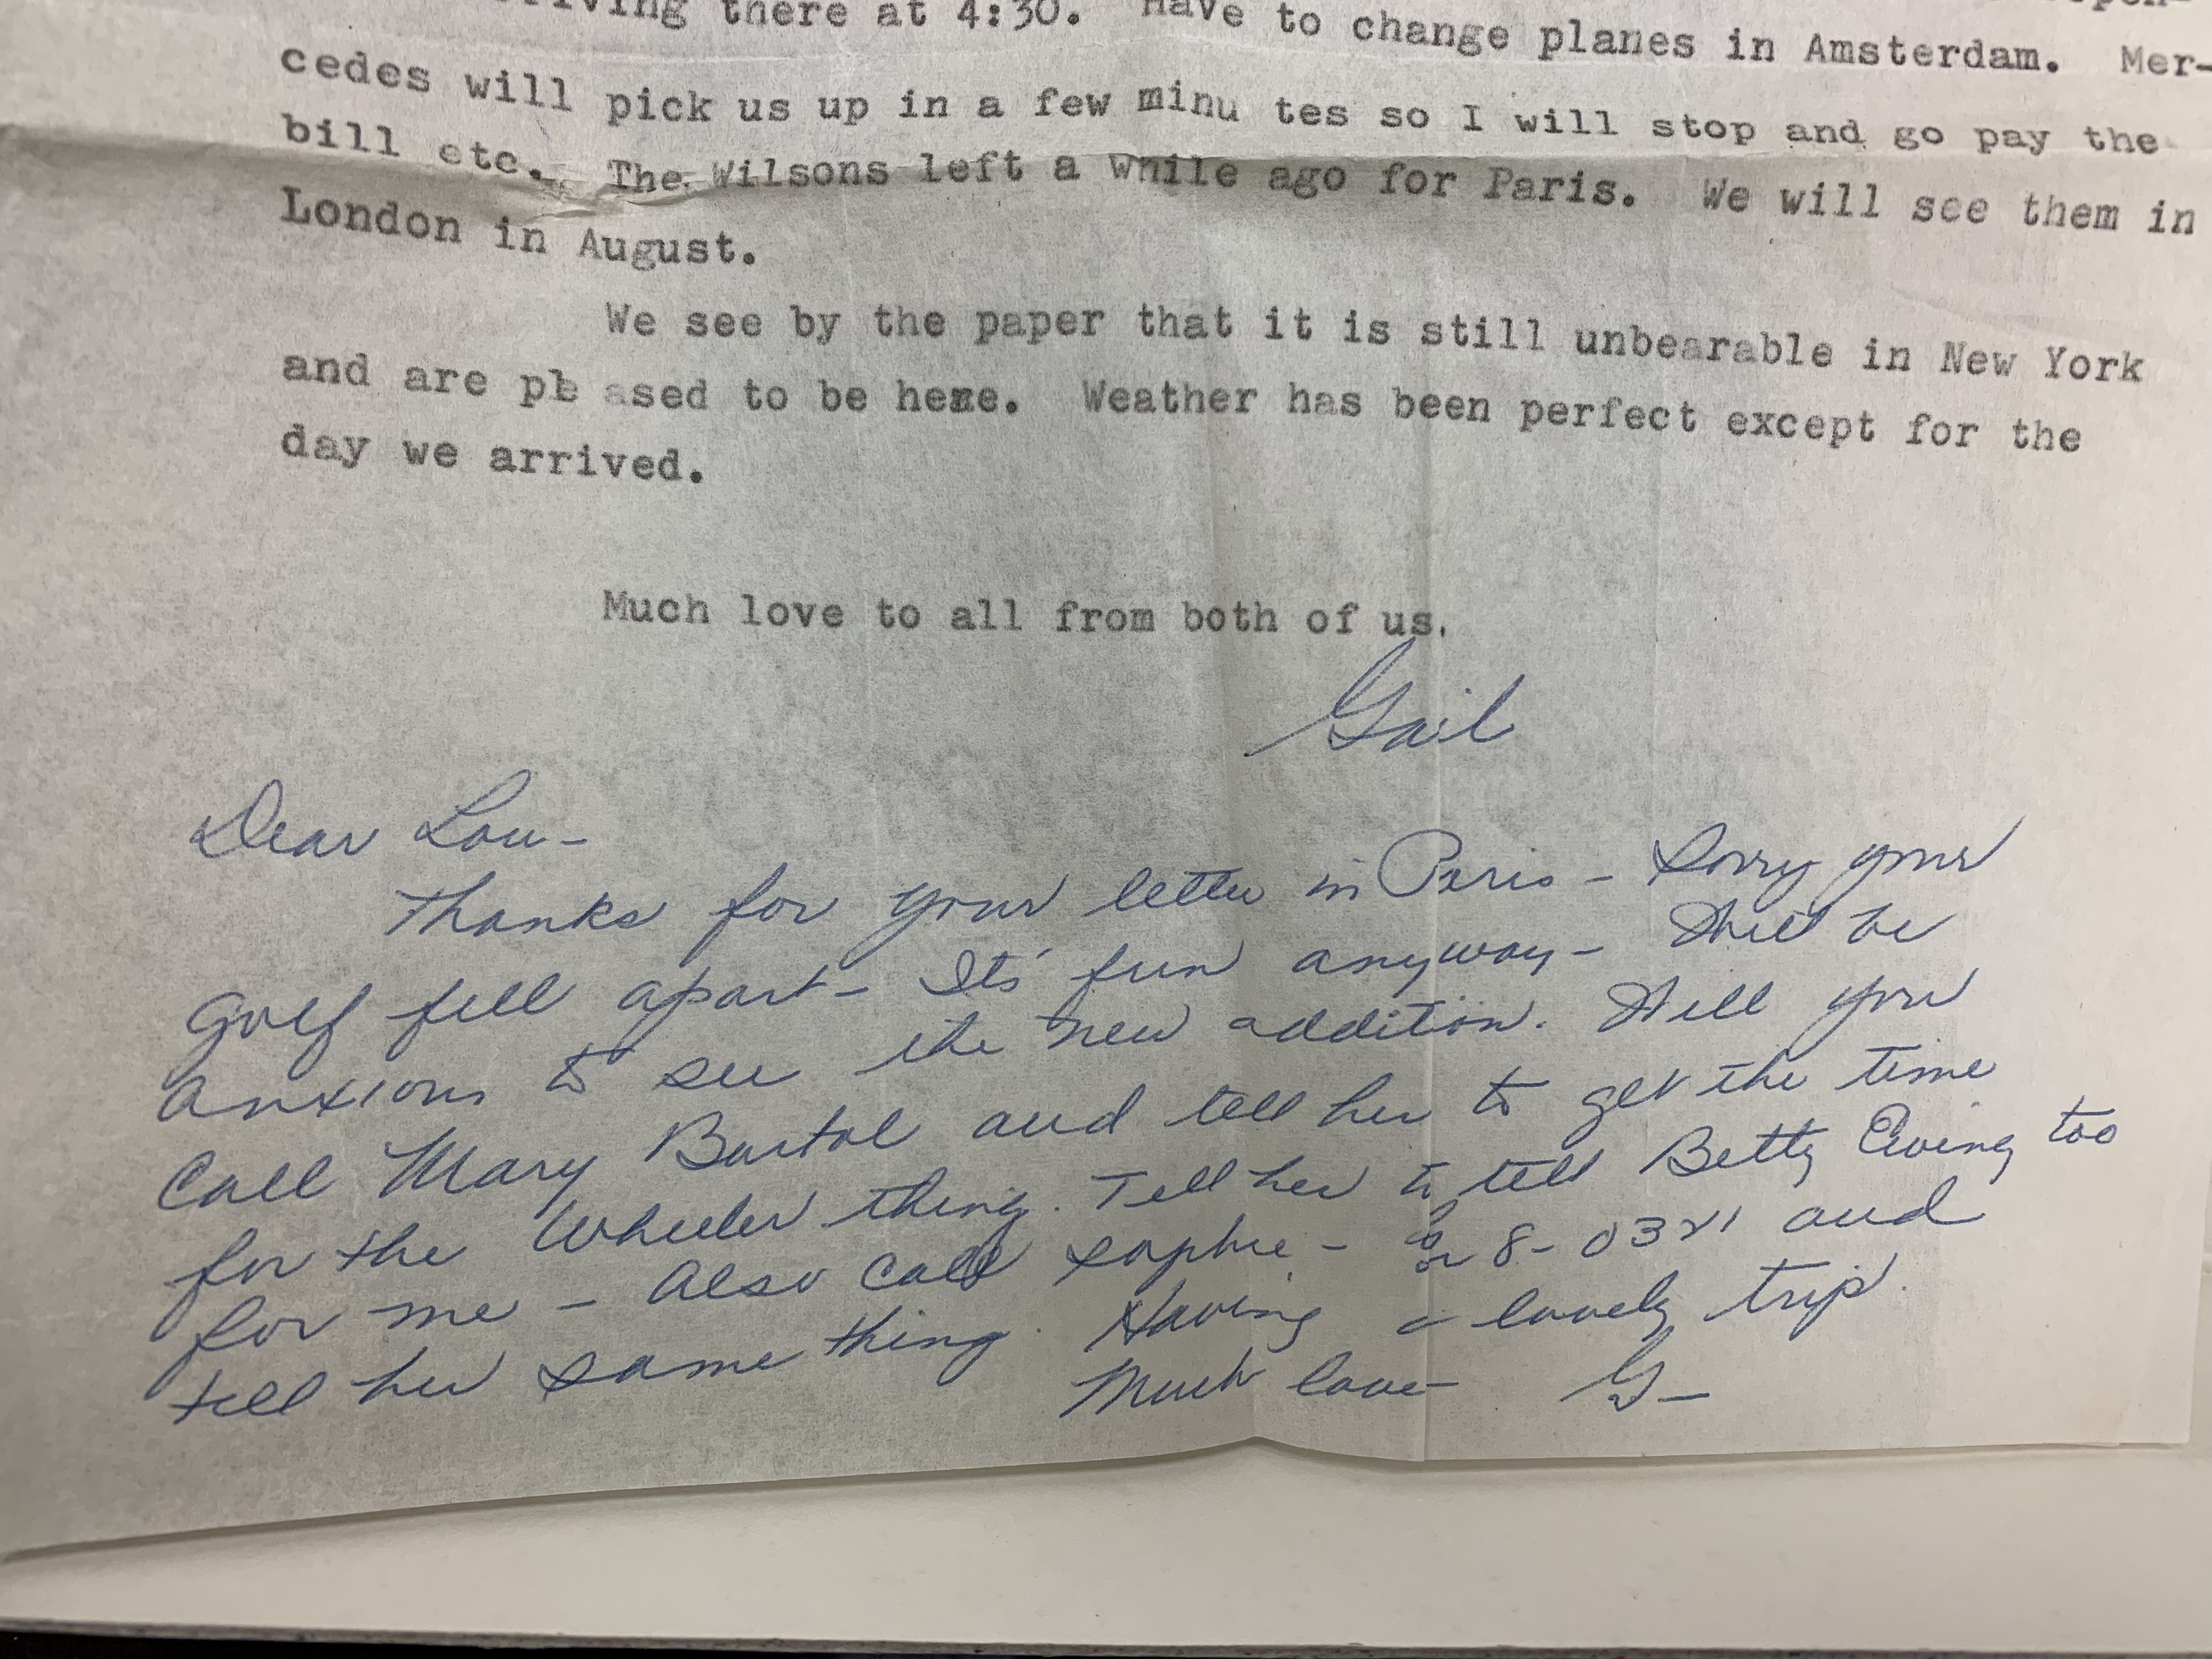 riving there at 4:30. Have to change planes in Amsterdam. Mer-
cedes will pick us up in a few minu tes so I will stop and go pay the
bill etc. The Wilsons left a while ago for Paris. We will see them in
London in August.
We see by the paper that it is still unbearable in New York
and are pleased to be here. Weather has been perfect except for the
day we arrived.
Much love to all from both of us.
Gail
Dear Lou-
Thanks for your letter in Paris - Sorry your
golf fell apart - It's fun anyway - Will be
anxious to see the new addition. Will you
call Mary Bartol and tell her to get the time
for the Wheeler thing. Tell her to tell Betty Ewing too
for me - Also call Sophie - 8-0321 and
tell her same thing. Having a lovely trip.
Much love - G-